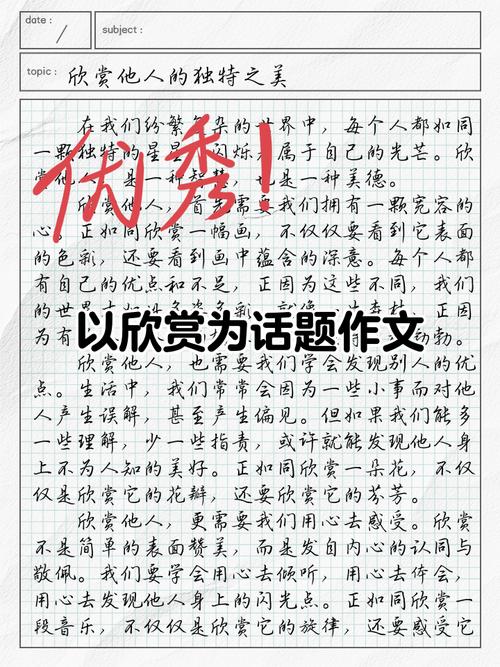 date :
subject :
topic : 欣赏他人的独特之美
在我们纷繁复杂的世界中，每个人都如同
一颗独特的星星，闪烁着属于自己的光芒。欣
赏他人，是一种智慧，也是一种美德。
优秀！
欣赏他人，首先需要我们拥有一颗宽容的
心。正如同欣赏一幅画，不仅仅要看到它表面
的色彩，还要看到画中蕴含的深意。每个人都
有自己的优点和不足，正因为这些不同，我们
的世界
因
为有
勃勃。
以欣赏为话题作文
欣赏他人，也需要我们学会发现别人的优
点。生活中，我们常常会因为一些小事而对他
人产生误解，甚至产生偏见。但如果我们能多
一些理解，少一些指责，或许就能发现他人身
上不为人知的美好。正如同欣赏一朵花，不仅
仅是欣赏它的花瓣，还要欣赏它的芬芳。
欣赏他人，更需要我们用心去感受。欣赏
不是简单的表面赞美，而是发自内心的认同与
敬佩。我们要学会用心去倾听，用心去体会，
用心去发现他人身上的闪光点。正如同欣赏一
段音乐，不仅仅是欣赏它的旋律，还要感受它